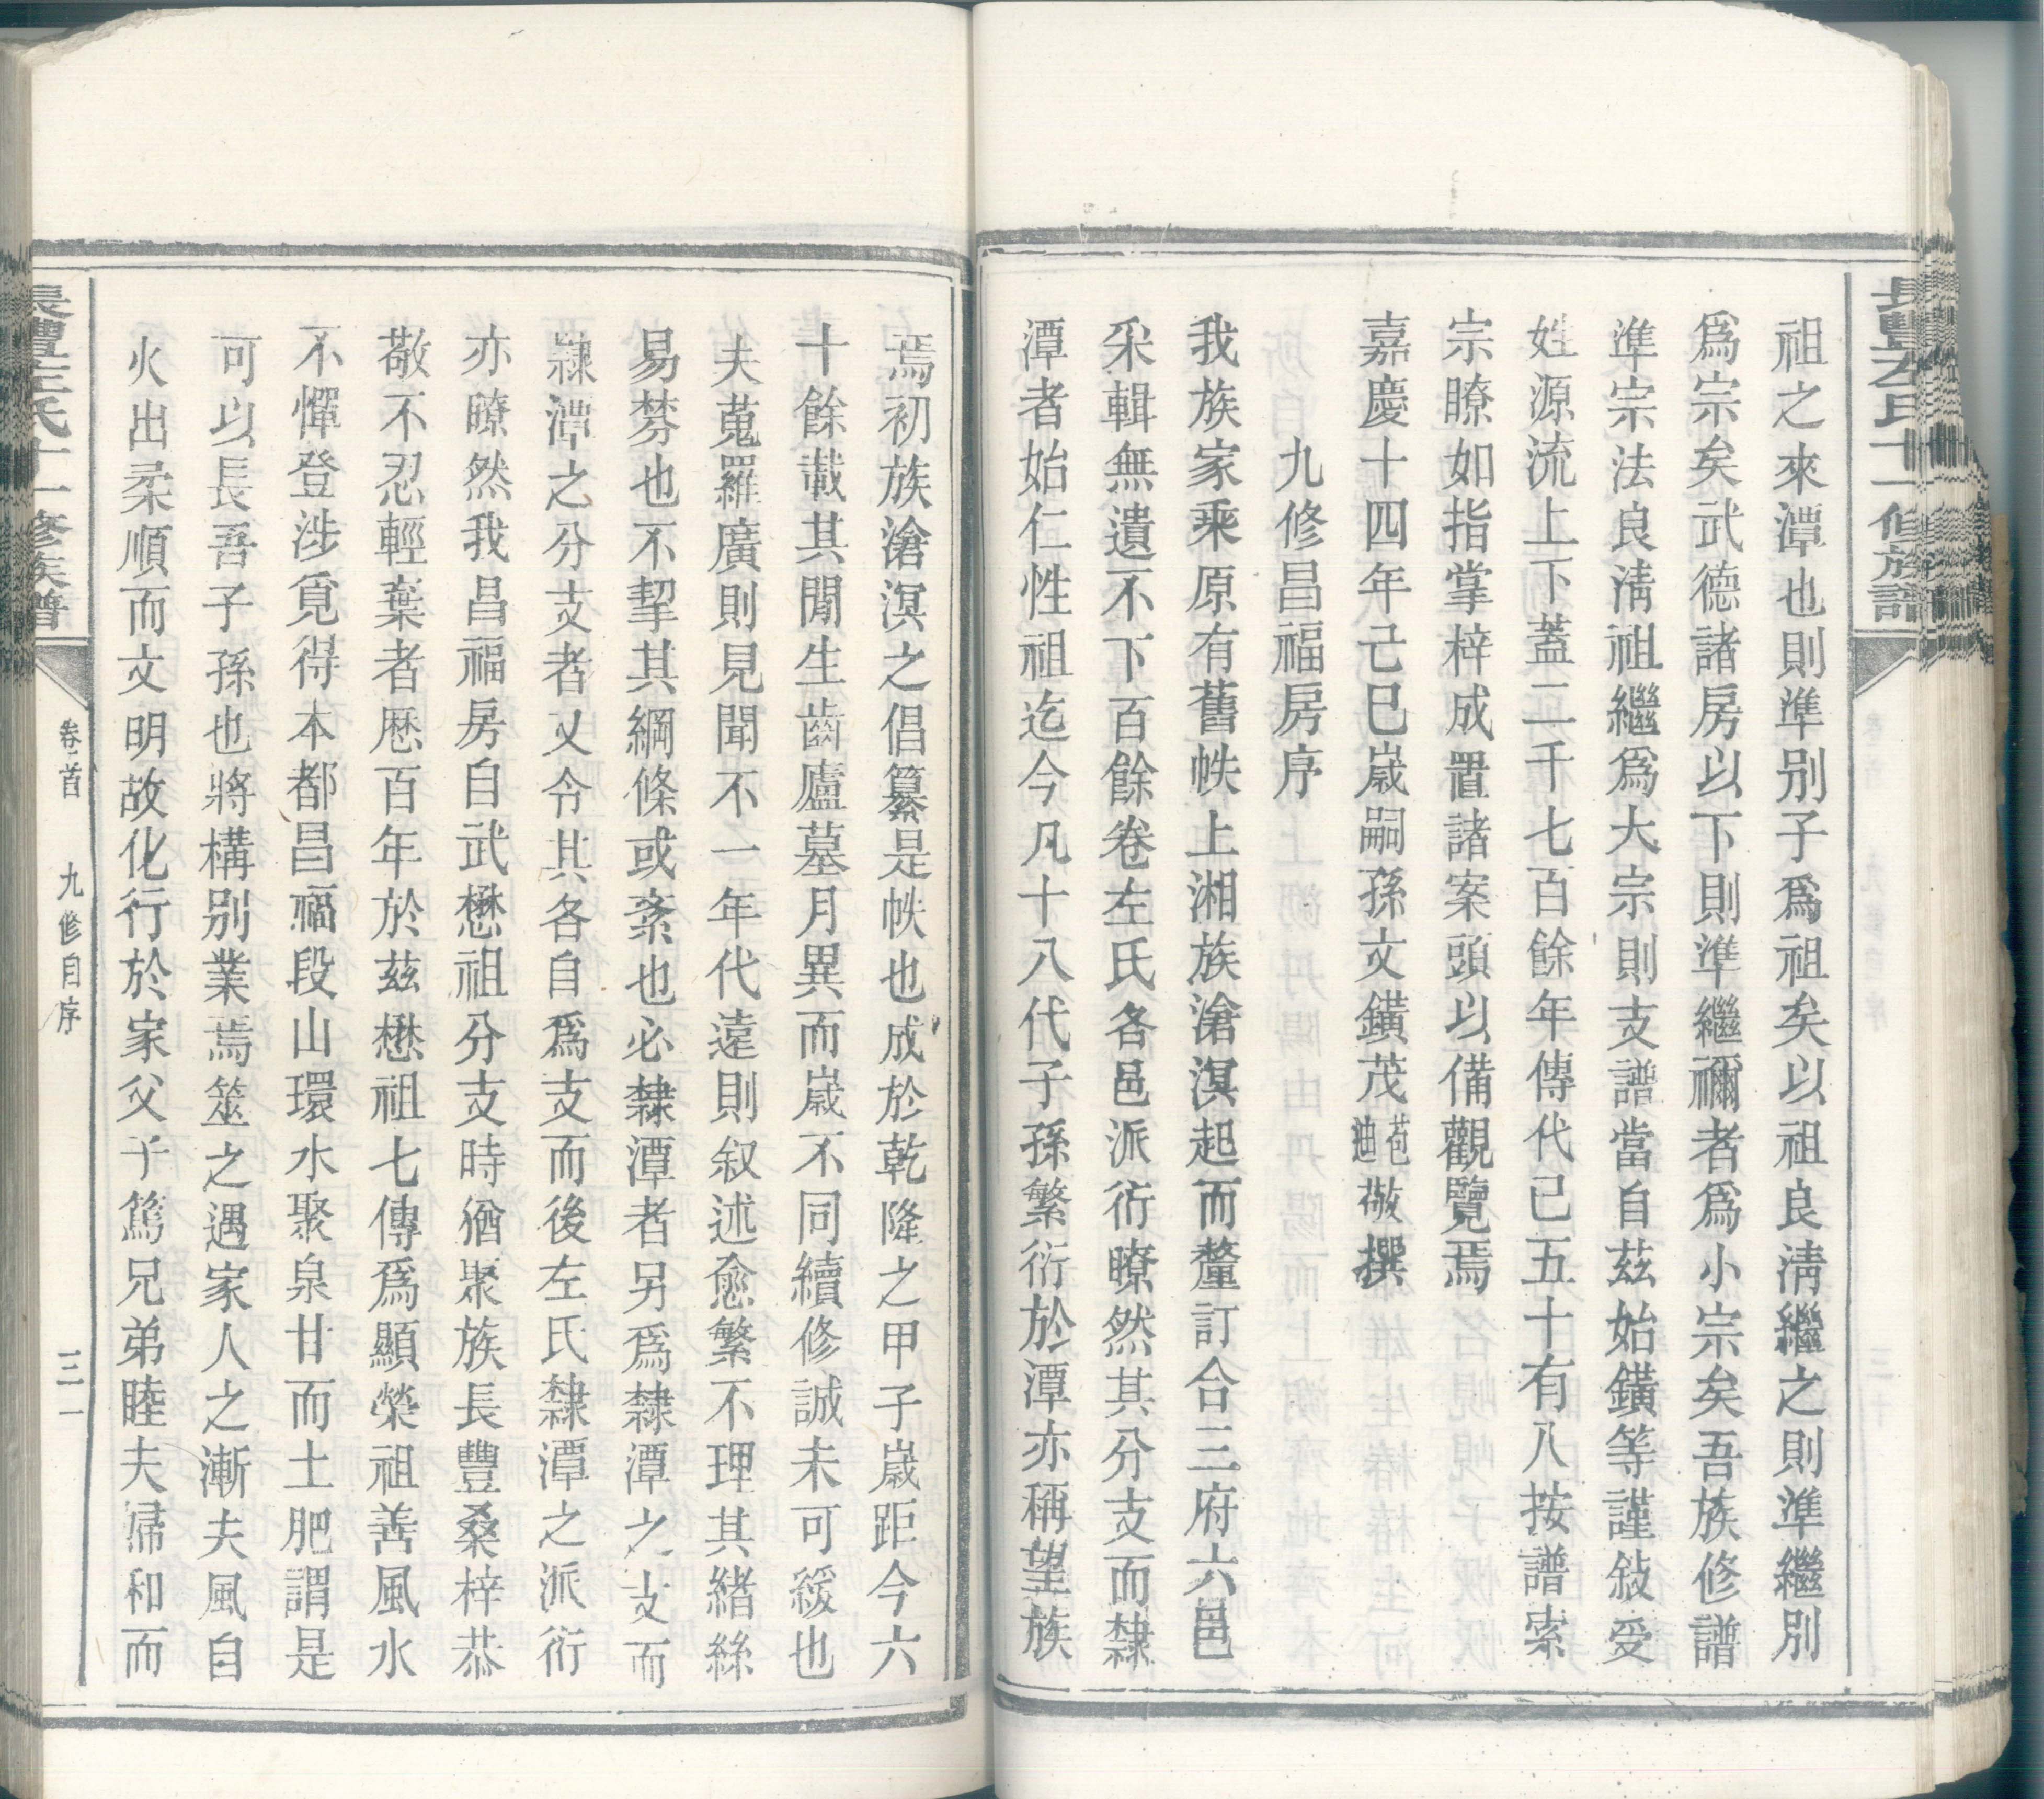 長豐左氏十一修族譜
祖之來潭也則準别子爲祖矣以祖良淸繼之則準繼别
爲宗矣武德諸房以下則準繼禰者爲小宗矣吾族修譜
準宗法良淸祖繼爲大宗則支譜當自茲始鐄等謹敍受
姓源流上下蓋二千七百餘年傳代己五十有八按譜索
宗瞭如指掌梓成置諸案頭以備觀覽焉
嘉慶十四年己巳嵗嗣孫文鐄茂苞迪敬撰
九修昌福房序
我族家乘原有舊帙上湘族滄溟起而釐訂合三府六邑
采輯無遺不下百餘卷左氏各邑派衍瞭然其分支而隸
潭者始仁性祖迄今凡十八代子孫繁衍於潭亦稱望族
焉初族滄溟之倡纂是帙也成於乾隆之甲子嵗距今六
十餘載其閒生齒廬墓月異而嵗不同續修誠未可緩也
夫蒐羅廣則見聞不一年代遠則叙述愈繁不理其緒絲
易棼也不挈其綱條或紊也必隸潭者另爲隸潭之支而
隸潭之分支者又令其各自爲支而後左氏隸潭之派衍
亦瞭然我昌福房自武懋祖分支時猶聚族長豐桑梓恭
敬不忍輕棄者歷百年於茲懋祖七傳爲顯榮祖善風水
不憚登涉覓得本都昌福段山環水聚泉甘而土肥謂是
可以長吾子孫也將構別業焉筮之遇家人之漸夫風自
火出柔順而文明故化行於家父子篤兄弟睦夫婦和而
長豐左氏十一修族譜
卷首 九修自序
三一